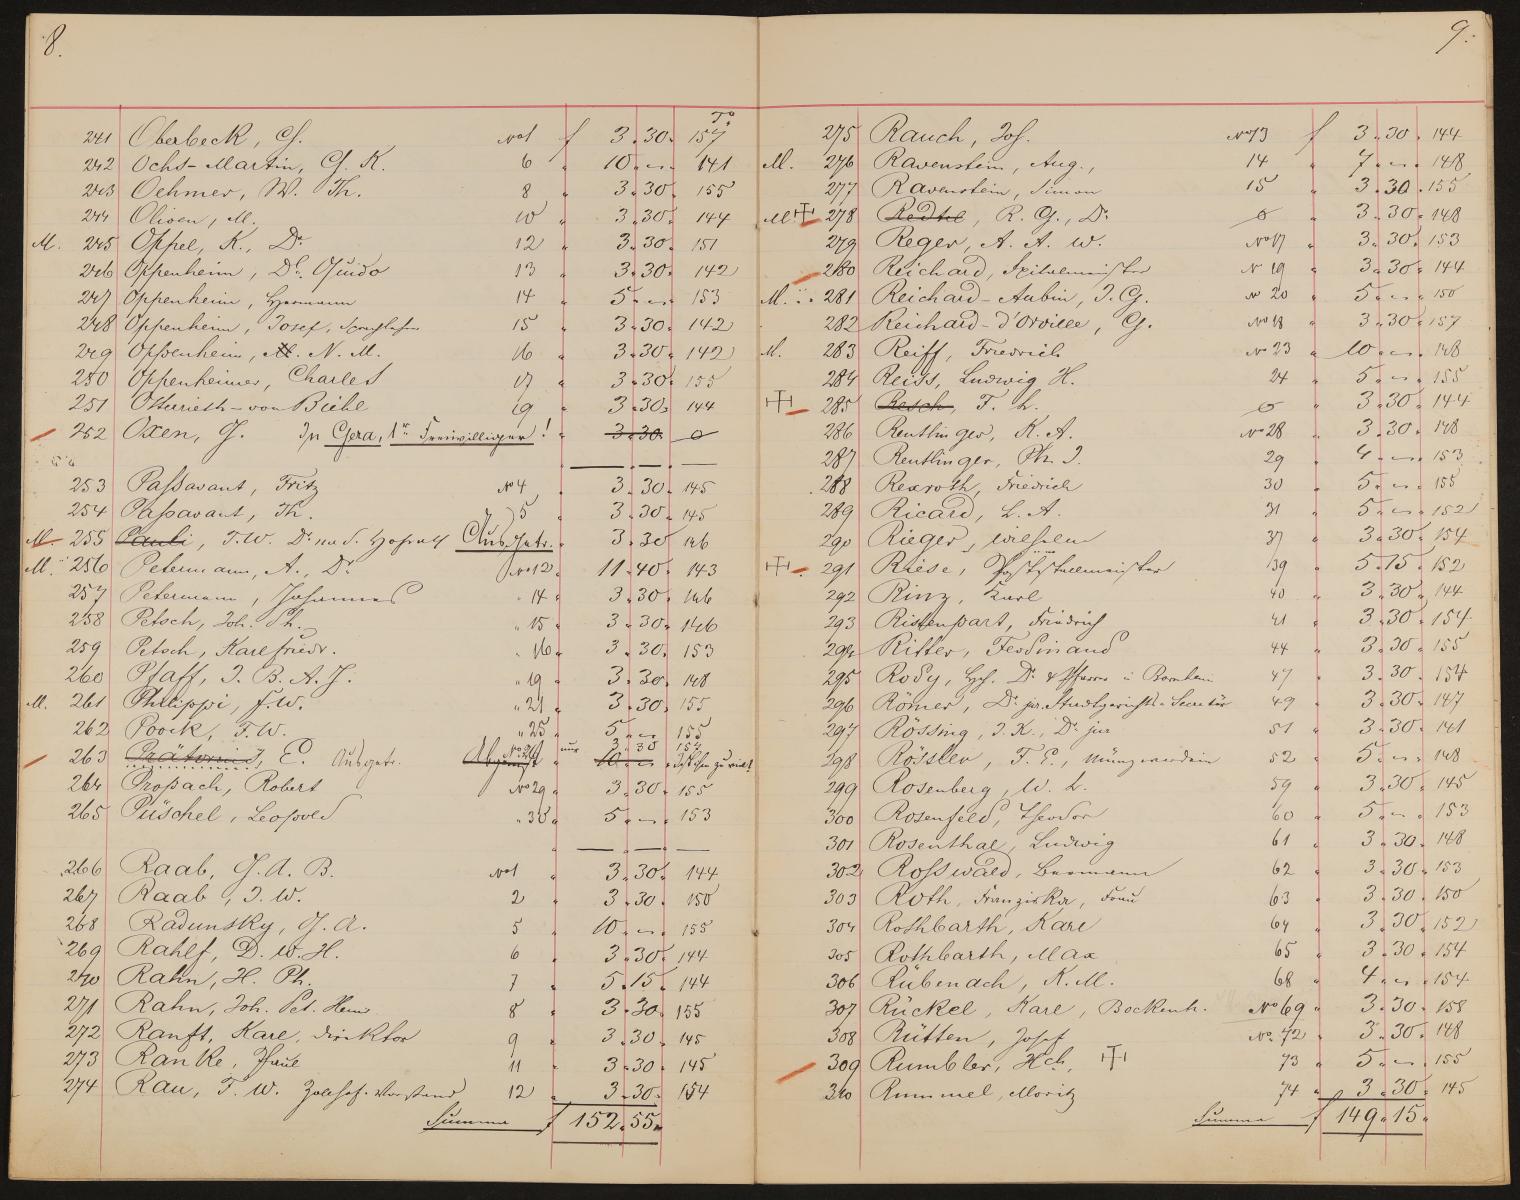 8.
Fo
241 Oberbeck, G. No 1 f 3. 30. 157
242 Ochs-Martin, G. K. 6 " 10 " — " 141
243 Oehmer, W. Th. 8 " 3. 30. 155
244 Oliven, M. 10 " 3. 30. 144
M. 245 Oppel, K., Dr. 12 " 3. 30. 151
246 Oppenheim, Dr. Guido 13 " 3. 30. 142
247 Oppenheim, Hermann 14 " 5 " — " 153
248 Oppenheim, Josef, 15 " 3. 30. 142
249 Oppenheim, M. N. M. 16 " 3. 30. 142
250 Oppenheimer, Charles 17 " 3. 30. 155
251 Osterrieth-von Bihl 19 " 3. 30. 144
252 Oxen, G. In Gera, 1r Freiwilliger! " 3. 30. 0
253 Passavant, Fritz No 4 " 3. 30. 145
254 Passavant, Th. " 5 " 3. 30. 145
M 255 Pauli, F. W. Dr. med. Hofrath Ausgetr. " 3. 30 146
M. 256 Petermann, A., Dr. No 12 " 11. 40. 143
257 Petermann, Johannes " 14 " 3. 30. 146
258 Petsch, Joh. Ph. " 15 " 3. 30. 146
259 Petsch, Karl Friedr. " 16 " 3. 30. 153
260 Pfaff, J. B. A. J. " 19 " 3. 30. 148
M. 261 Philippi, F. W. " 21 " 3. 30. 155
262 Poock, F. W. " 25 " 5 " — 155
263 Prätorius, E. Ausgetr. No 26 nur 3. 30 10 " — "
264 Prosach, Robert No 29 " 3. 30. 155
265 Püschel, Leopold " 30 " 5 " — " 153
266 Raab, G. A. B. No 1 " 3. 30. 144
267 Raab, J. W. 2 " 3. 30. 150
268 Radunsky, J. A. 5 " 10 " — " 155
269 Rahlf, D. W. H. 6 " 3. 30. 144
270 Rahn, H. Ph. 7 " 5. 15. 144
271 Rahn, Joh. Pet. Heinr. 8 " 3. 30. 155
272 Ranft, Karl, Direktor 9 " 3. 30. 145
273 Ranke, Paul 11 " 3. 30. 145
274 Rau, F. W. Zollhof-Vorstand 12 " 3. 30. 154
Summa f 152. 55.
9.
275 Rauch, Jos. No 13 f 3. 30. 144
M. 276 Ravenstein, Aug., 14 " 7 " — " 148
277 Ravenstein, Simon 15 " 3. 30. 155
M. 278 Redtel, R. G., Dr. 0 " 3. 30. 148
279 Reger, A. A. W. No 17 " 3. 30. 153
280 Reichard, Spitalmeister No 19 " 3. 30. 144
M. 281 Reichard-Aubin, J. G. No 20 " 5 " — " 150
282 Reichard-d'Orville, G. No 18 " 3. 30. 157
M. 283 Reiff, Friedrich No 23 " 10 " — " 148
284 Reiss, Ludwig H. 24 " 5 " — " 155
285 Resch, F. L. 0 " 3. 30. 144
286 Reutlinger, K. A. No 28 " 3. 30. 148
287 Reutlinger, Ph. J. 29 " 4 " — " 153
288 Rexroth, Friedrich 30 " 5 " — " 155
289 Ricard, L. A. 31 " 5 " — " 152
290 Rieger, Wilhelm 37 " 3. 30. 154
291 Riese, Poststallmeister 39 " 5. 15. 152
292 Rinz, Karl 40 " 3. 30. 144
293 Ristenpart, Friedrich 41 " 3. 30. 154
294 Ritter, Ferdinand 44 " 3. 30. 155
295 Rody, Hch. Dr. & Pfarrer i. Bornheim 47 " 3. 30. 154
296 Römer, Dr. jur. Stadtgerichts-Secretär 49 " 3. 30. 147
297 Rössing, J. K., Dr. jur. 51 " 3. 30. 141
298 Rössler, F. E., Münzwardein 52 " 5 " — " 148
299 Rosenberg, W. L. 59 " 3. 30. 145
300 Rosenfeld, Theodor 60 " 5 " — " 153
301 Rosenthal, Ludwig 61 " 3. 30. 148
302 Rosswald, Bermann 62 " 3. 30. 153
303 Roth, Franziska, Frau 63 " 3. 30. 150
304 Rothbarth, Karl 64 " 3. 30. 152
305 Rothbarth, Max 65 " 3. 30. 154
306 Rübenach, K. M. 68 " 4 " — " 154
307 Rückel, Karl, Bockenh. No 69 " 3. 30. 158
308 Rütten, Josef No. 72 " 3. 30. 148
309 Rumbler, Hch. 73 " 5 " — " 155
310 Rummel, Moritz 74 " 3. 30. 145
Summa f 149. 15.